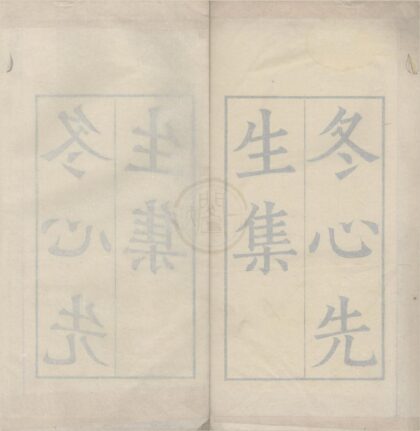 冬心先
生集